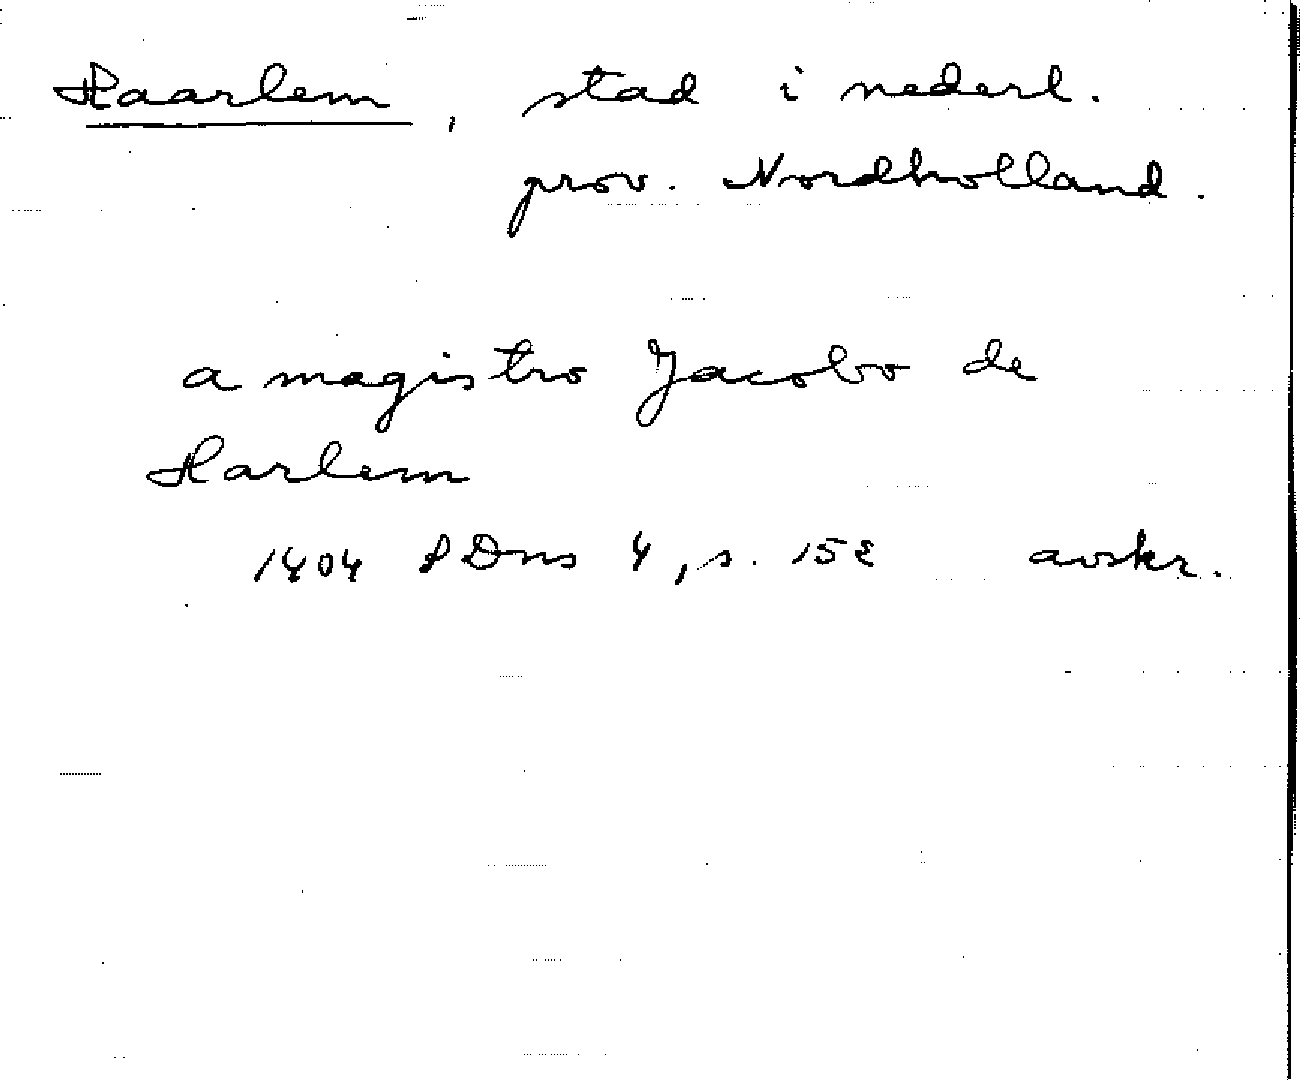 Haarlem, stad i nederl.
prov. Nordholland.
a magistro Jacobo de
Harlem
1404 SDns 4, s. 152 avskr.